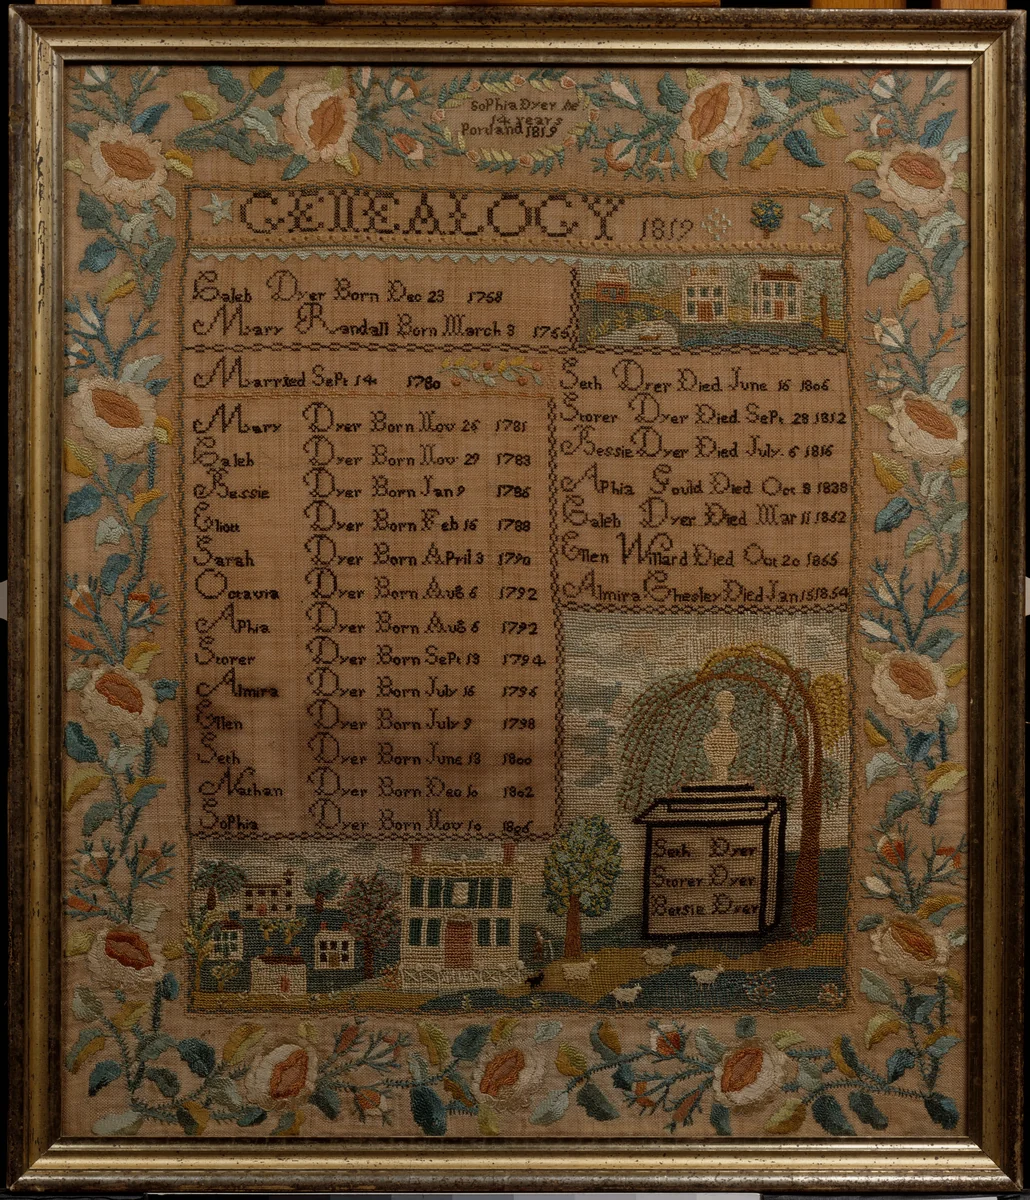 SoPhia Dyer Ae
14 years
Portland 1819
GENEALOGY 1819
Caleb Dyer Born Dec 23 1758
Mary Randall Born March 3 1755
Married SePt 14 1780
Mary Dyer Born Nov 25 1781
Caleb Dyer Born Nov 29 1783
Bessie Dyer Born Jan 9 1786
Eliott Dyer Born Feb 16 1788
Sarah Dyer Born APril 3 1790
Octavia Dyer Born Aug 6 1792
APhia Dyer Born Aug 6 1792
Storer Dyer Born SePt 13 1794
Almira Dyer Born July 16 1796
Ellen Dyer Born July 9 1798
Seth Dyer Born June 13 1800
Nathan Dyer Born Dec 10 1802
SoPhia Dyer Born Nov 10 1805
Seth Dyer Died June 16 1806
Storer Dyer Died SePt 28 1812
Bessie Dyer Died July 6 1816
APhia Gould Died Oct 8 1838
Caleb Dyer Died Mar 11 1852
Ellen Willard Died Oct 20 1865
Almira Chesley Died Jan 15 1854
Seth Dyer
Storer Dyer
Betsie Dyer